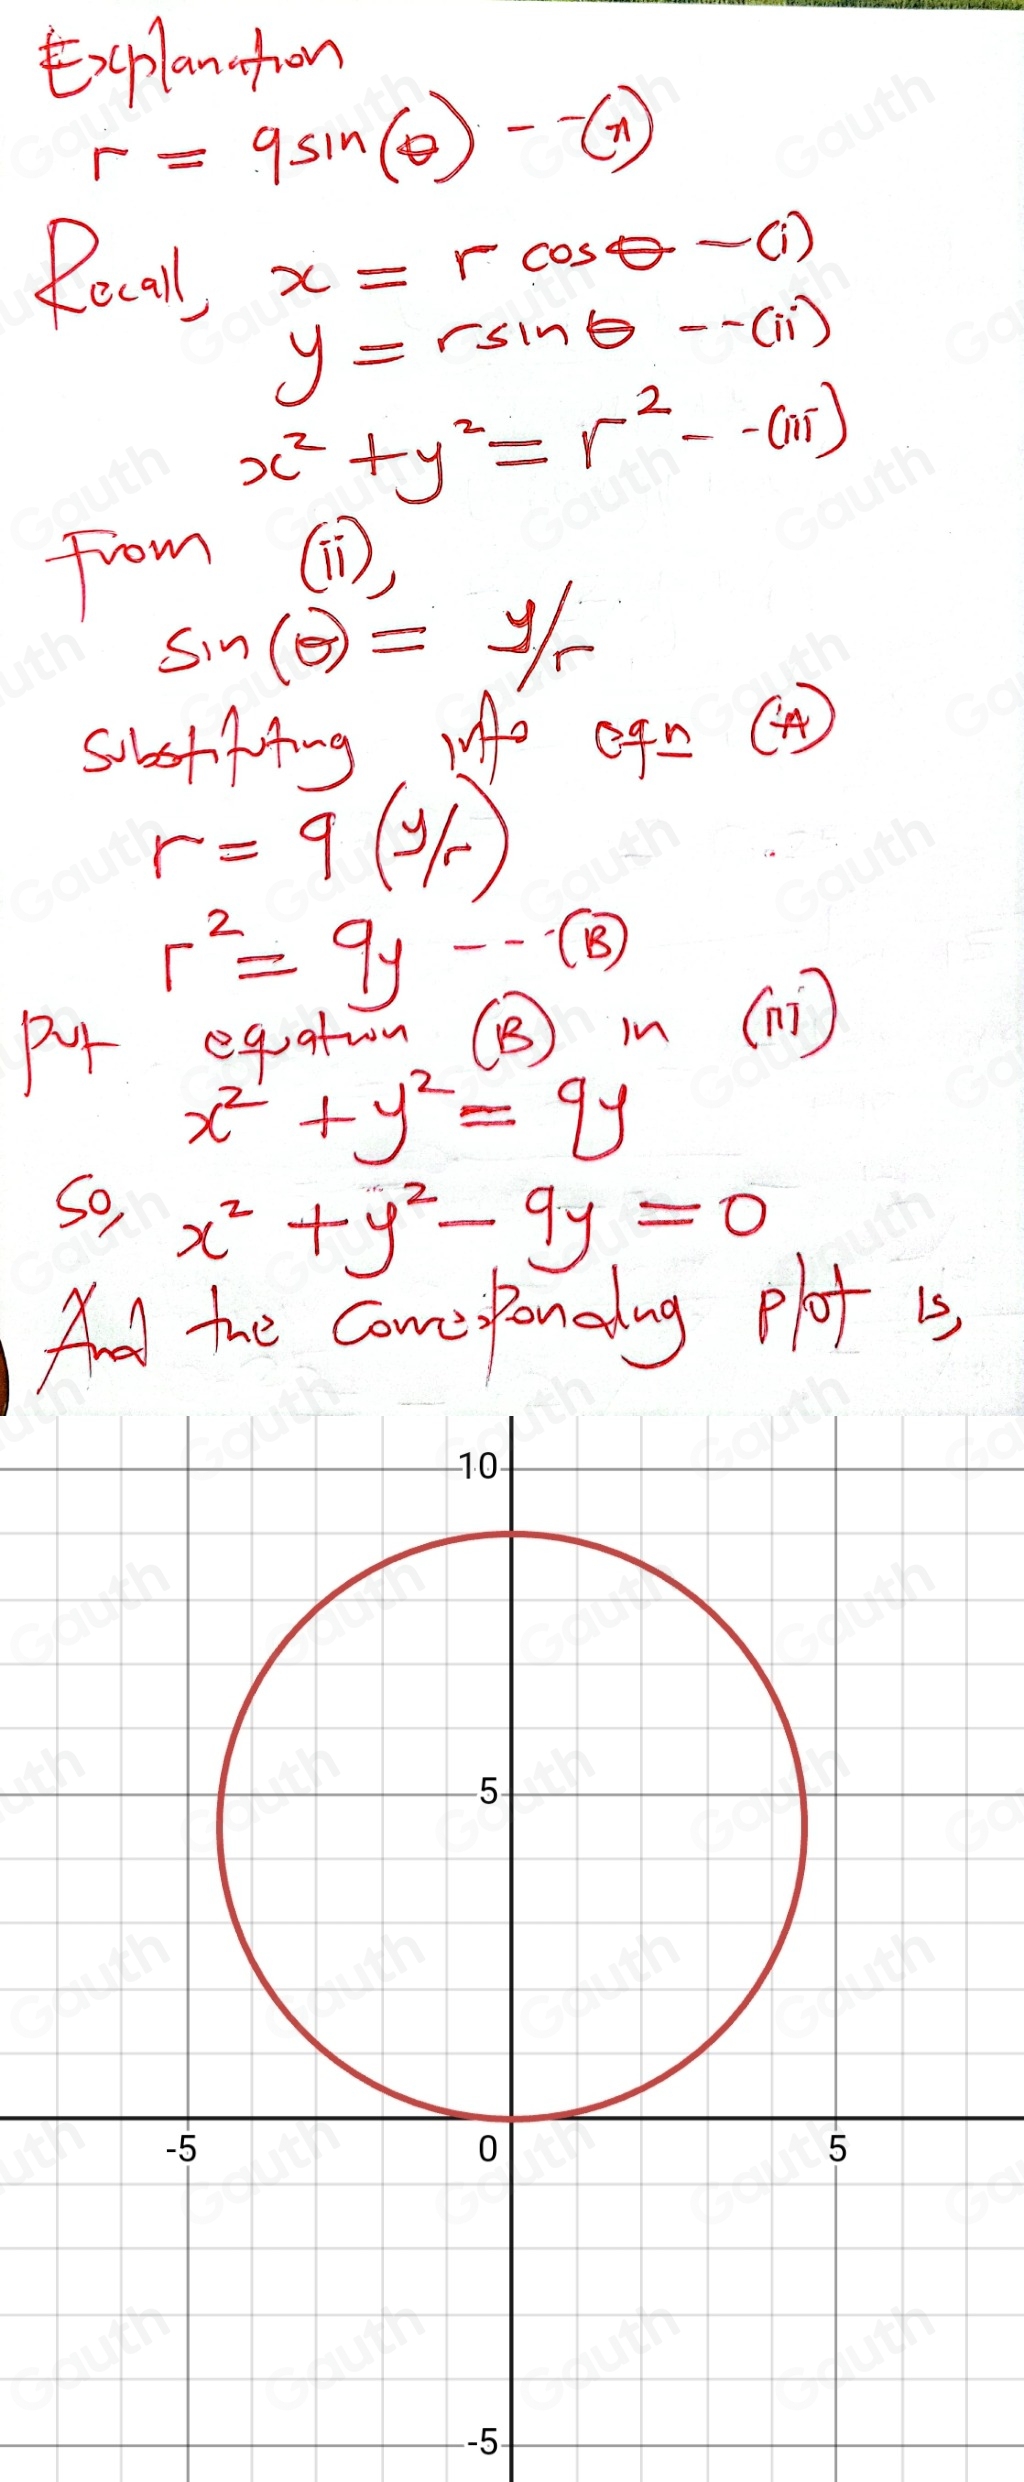 Explanation
r = 9sin(θ) - -(A)
Recall, x = r cosθ -(i)
y = rsinθ --(ii)
x² + y² = r² - -(iii)
From (ii),
sin(θ) = y/r
substituting into eqn (A)
r = 9 (y/r)
r² = 9y - - -(B)
Put equation (B) in (iii)
x² + y² = 9y
So, x² + y² - 9y = 0
And the corresponding plot is,
10
5
-5 0 5
-5
Gauth